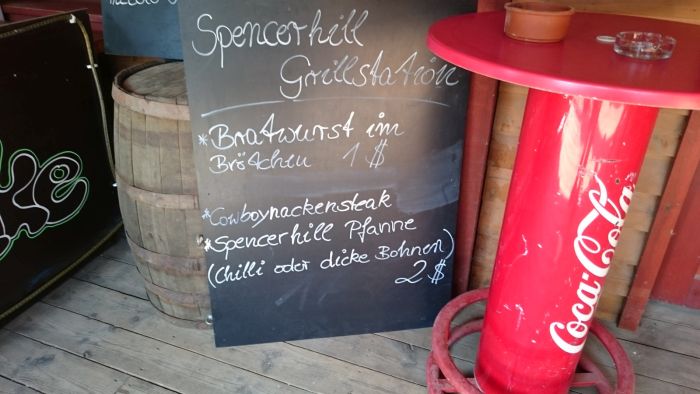 Spencerhill
Grillstation
*Bratwurst im
Brötchen 1 $
*Cowboynackensteak
*Spencerhill Pfanne
(Chilli oder dicke Bohnen)
2 $
Coca-Cola